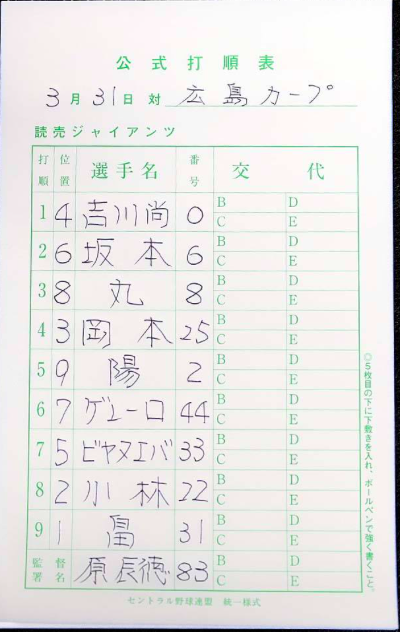 公式打順表
3月31日 対 広島カープ
読売ジャイアンツ
打順 位置 選手名 番号 交代
1 4 吉川尚 0 B D C E
2 6 坂本 6 B D C E
3 8 丸 8 B D C E
4 3 岡本 25 B D C E
5 9 陽 2 B D C E
6 7 ゲレーロ 44 B D C E
7 5 ビヤヌエバ 33 B D C E
8 2 小林 22 B D C E
9 1 畠 31 B D C E
監督署名 原辰徳 83 B D C E
◎5枚目の下に下敷きを入れ、ボールペンで強く書くこと。
セントラル野球連盟 統一様式